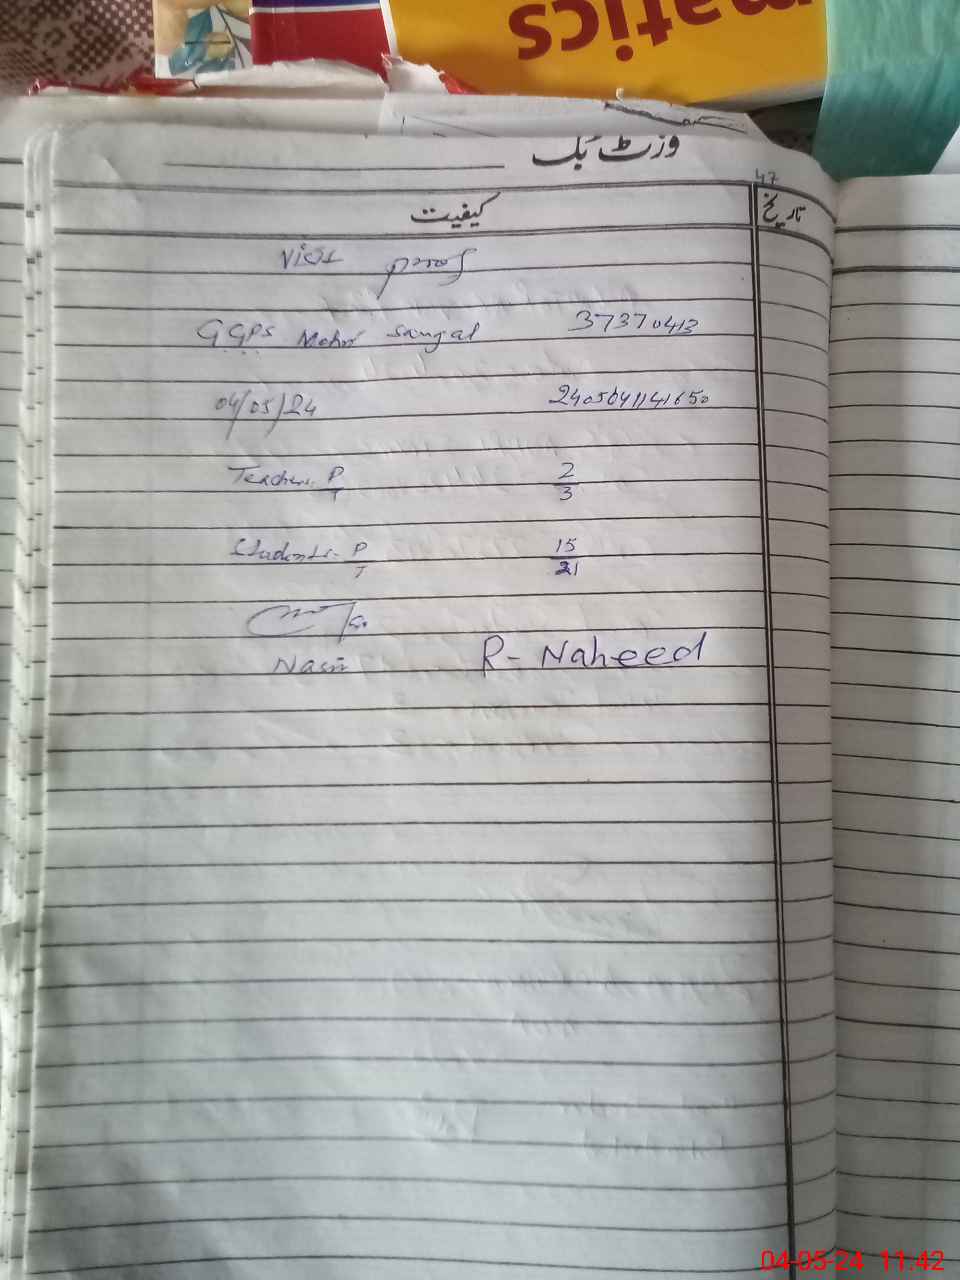 matics
وزٹ بک
47
تاریخ
کیفیت
Visit proof
GGPS Mohri Sangal 37370413
04/05/24 2405041141650
Teachers P/T 2/3
Students P/T 15/21
Nasir R-Naheed
04-05-24 11:42